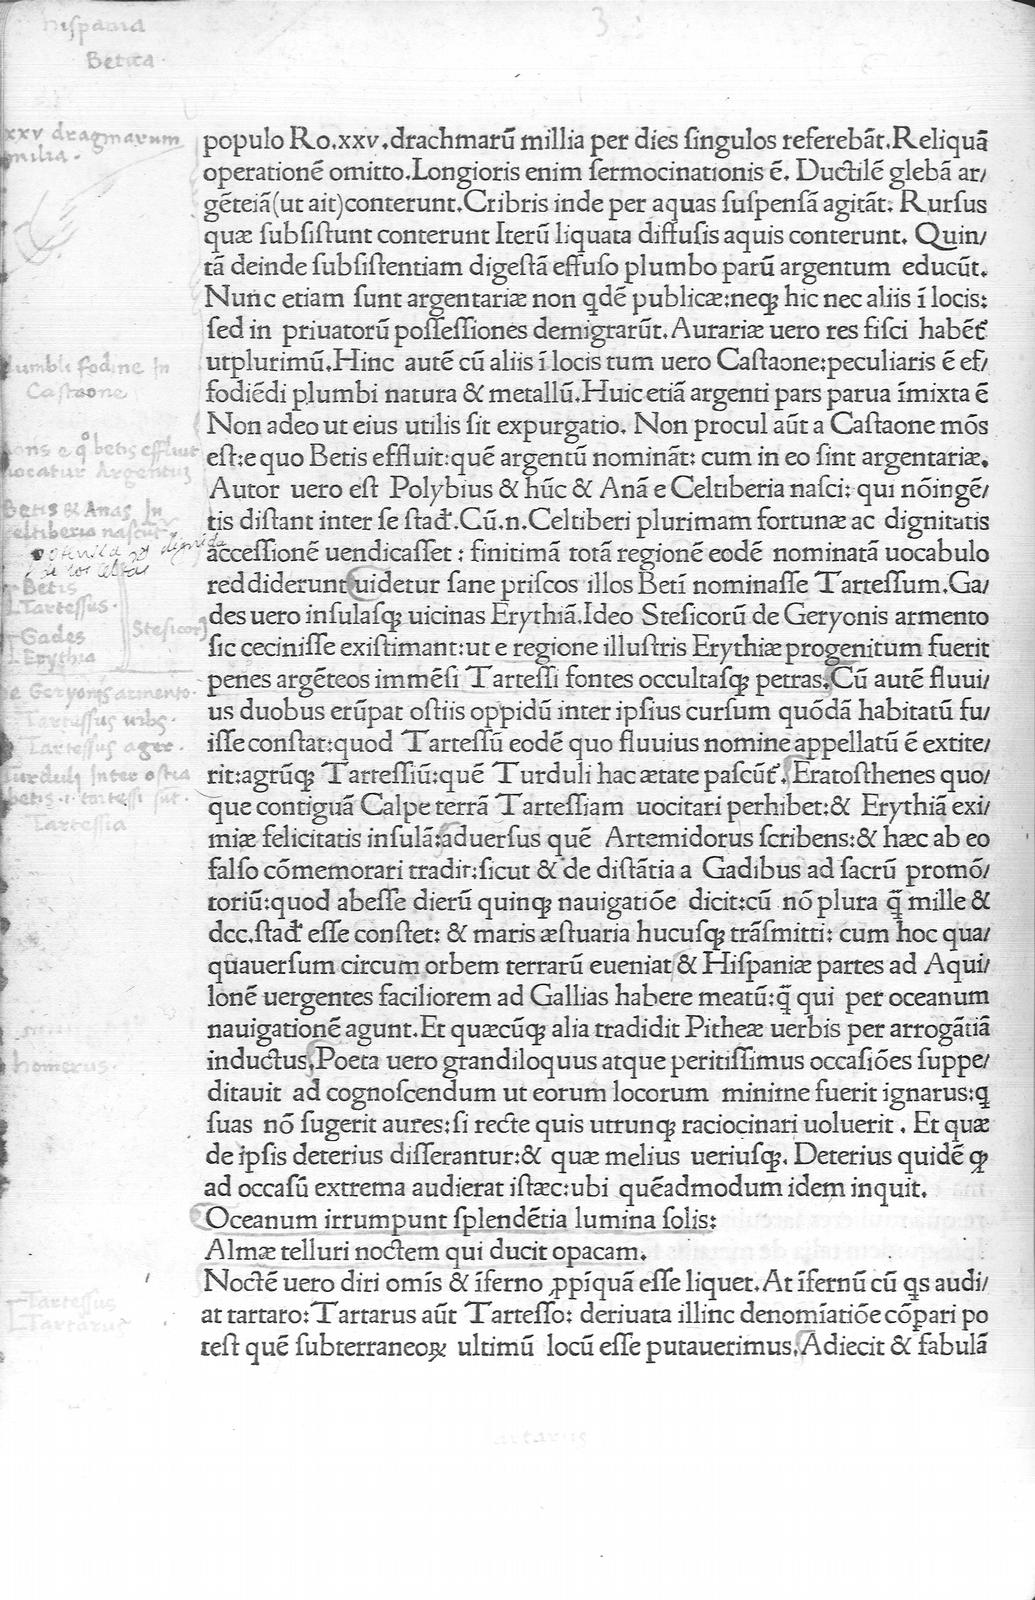 hispania
3
Betica
xxv dragmarum
milia.
populo Ro.xxv.drachmarū millia per dies ſingulos referebāt.Reliquā
operationē omitto.Longioris enim ſermocinationis ē. Ductilē glebā ar/
gēteiā(ut ait)conterunt.Cribris inde per aquas ſuſpenſā agitāt. Rurſus
quæ ſubſiſtunt conterunt Iterū liquata diffuſis aquis conterunt. Quin/
tā deinde ſubſiſtentiam digeſtā effuſo plumbo parū argentum educūt.
Nunc etiam ſunt argentariæ non qdē publicæ:neqꝫ hic nec aliis ī locis:
ſed in priuatorū poſſeſſiones demigrarūt. Aurariæ uero res fiſci habēt
utplurimū.Hinc autē cū aliis ī locis tum uero Caſtaone:peculiaris ē ef/
fodiēdi plumbi natura & metallū.Huic etiā argenti pars parua īmixta ē
Non adeo ut eius utilis ſit expurgatio. Non procul aūt a Caſtaone mōs
eſt:e quo Betis effluit:quē argentū nomināt: cum in eo ſint argentariæ.
Autor uero eſt Polybius & hūc & Anā e Celtiberia naſci: qui nōingē/
tis diſtant inter ſe ſtad̄.Cū.n.Celtiberi plurimam fortunæ ac dignitatis
acceſſionē uendicaſſet : finitimā totā regionē eodē nominatā uocabulo
reddiderunt uidetur ſane priſcos illos Betī nominaſſe Tarteſſum.Ga/
des uero inſulaſqꝫ uicinas Erythiā.Ideo Steſicorū de Geryonis armento
ſic ceciniſſe exiſtimant:ut e regione illuſtris Erythiæ progenitum fuerit
penes argēteos immēſi Tarteſſi fontes occultaſqꝫ petras.Cū autē fluui/
us duobus erūpat oſtiis oppidū inter ipſius curſum quōdā habitatū fu/
iſſe conſtat:quod Tarteſſū eodē quo fluuius nomine appellatū ē extite/
rit:agrūqꝫ Tarteſſiū:quē Turduli hac ætate paſcūt.Eratoſthenes quo/
que contiguā Calpe terrā Tarteſſiam uocitari perhibet:& Erythiā exi/
miæ felicitatis inſulā:aduerſus quē Artemidorus ſcribens:& hæc ab eo
falſo cōmemorari tradit:ſicut & de diſtātia a Gadibus ad ſacrū promō/
toriū:quod abeſſe dierū quinqꝫ nauigatiōe dicit:cū nō plura q̄ mille &
dcc.ſtad̄ eſſe conſtet: & maris æſtuaria hucuſqꝫ trāſmitti: cum hoc qua/
quauerſum circum orbem terrarū eueniat & Hiſpaniæ partes ad Aqui/
lonē uergentes faciliorem ad Gallias habere meatū:q̄ qui per oceanum
nauigationē agunt.Et quæcūqꝫ alia tradidit Pitheæ uerbis per arrogātiā
inductus.Poeta uero grandiloquus atque peritiſſimus occaſiōes ſuppe/
ditauit ad cognoſcendum ut eorum locorum minime fuerit ignarus:q
ſuas nō ſugerit aures:ſi recte quis utrunqꝫ raciocinari uoluerit . Et quæ
de ipſis deterius diſſerantur:& quæ melius ueriuſqꝫ. Deterius quidē ꝙ
ad occaſū extrema audierat iſtæc:ubi quēadmodum idem inquit.
Oceanum irrumpunt ſplendētia lumina ſolis:
Almæ telluri noctem qui ducit opacam.
Noctē uero diri omīs & īferno ꝓpīquā eſſe liquet.At īfernū cū qs audi/
at tartaro:Tartarus aūt Tarteſſo: deriuata illinc denomīatiōe cōpari po
teſt quē ſubterraneoꝝ ultimū locū eſſe putauerimus.Adiecit & fabulā
plumbi fodine In
Caſtaone
mons e qº betis effluit
uocatur Argentuꝫ
Betis & Anas In
celtiberia naſcūt
Betis
Tarteſſus.
Steſicorꝰ
Gades
Erythia
de Geryonis armento.
Tarteſſus urbs.
Tarteſſus ager.
Turduli Inter oſtia
betis.i.tarteſſi ſūt.
Tarteſſia
homerus.
Tarteſſus
Tartarus